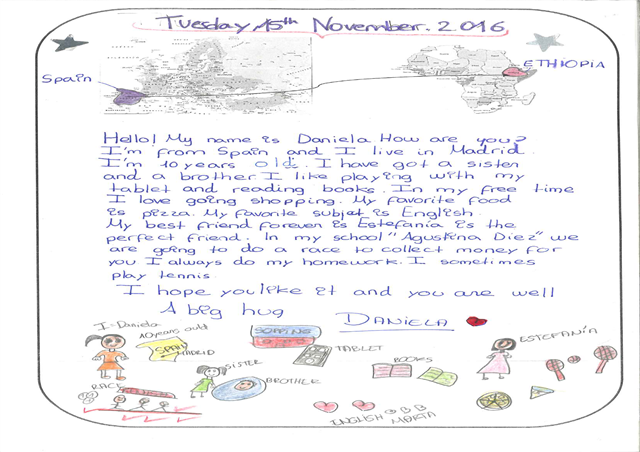 Tuesday, 15th November. 2016
Spain
ETHIOPIA
Hello! My name is Daniela How are you?
I'm from Spain and I live in Madrid.
I'm 10 years old. I have got a sister
and a brother. I like playing with my
tablet and reading books. In my free time
I love going shopping. My favorite food
is pizza. My favorite subjet is English.
My best friend forever is Estefania is the
perfect friend. In my school "Agustina Diez" we
are going to do a race to collect money for
you I always do my homework. I sometimes
play tennis
I hope you like it and you are well
A big hug
DANIELA
I=Daniela
10years ould
SPAIN
MADRID
SOPPING
TABLET
ESTEFANÍA
SISTER
BROTHER
BOOKS
RACE
ENGLISH
MARTA